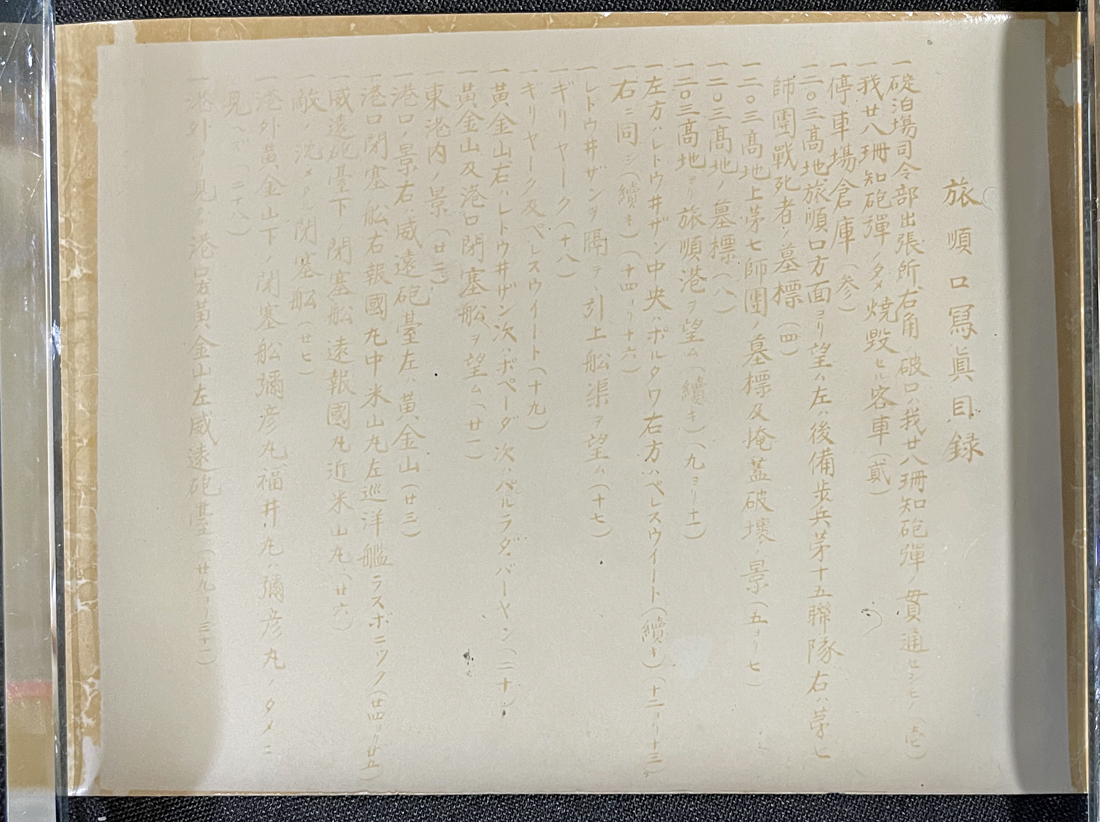 旅順口寫眞目録
一碇泊場司令部出張所右角ノ破口ハ我廿八珊知砲彈ノ貫通セシモノ(壱)
一我廿八珊知砲彈ノタメ焼毀セル客車(貳)
一停車場倉庫(参)
一二〇三高地旅順口方面ヨリ望ム左ハ後備歩兵第十五聯隊右ハ第七
師團戰死者ノ墓標(四)
一二〇三高地上第七師團ノ墓標及掩蓋破壞ノ景(五ヨリ七)
一二〇三高地ノ墓標(八)
一二〇三高地ヨリ旅順港ヲ望ム(續キ)(九ヨリ十一)
一左方ハレトウ井ザン中央ハポルタワ右方ハペレスウイート(續キ)(十二ヨリ十三)
一右ニ同シ(續キ)(十四ヨリ十六)
一レトウ井ザンヲ隔テ、引上船渠ヲ望ム(十七)
一ギリヤーク(十八)
一ギリヤーク及ペレスウイート(十九)
一黄金山右ハレトウ井ザン次ハポペーダ次ハパルラダ、バーヤン(二十)
一黄金山及港口閉塞船ヲ望ム(廿一)
一東港内ノ景(廿二)
一港口ノ景右ハ威遠砲臺左ハ黄金山(廿三)
一港口閉塞船右報國丸中米山丸左巡洋艦ラスボニック(廿四ヨリ廿五)
一威遠砲臺下ノ閉塞船遠報國丸近米山丸(廿六)
一敵ノ沈メタル閉塞船(廿七)
一港外黄金山下ノ閉塞船彌彦丸福井丸ハ彌彦丸ノタメニ
見ヘズ(二十八)
一港外ヨリ見タル港口右黄金山左威遠砲臺(廿九ヨリ三十一)